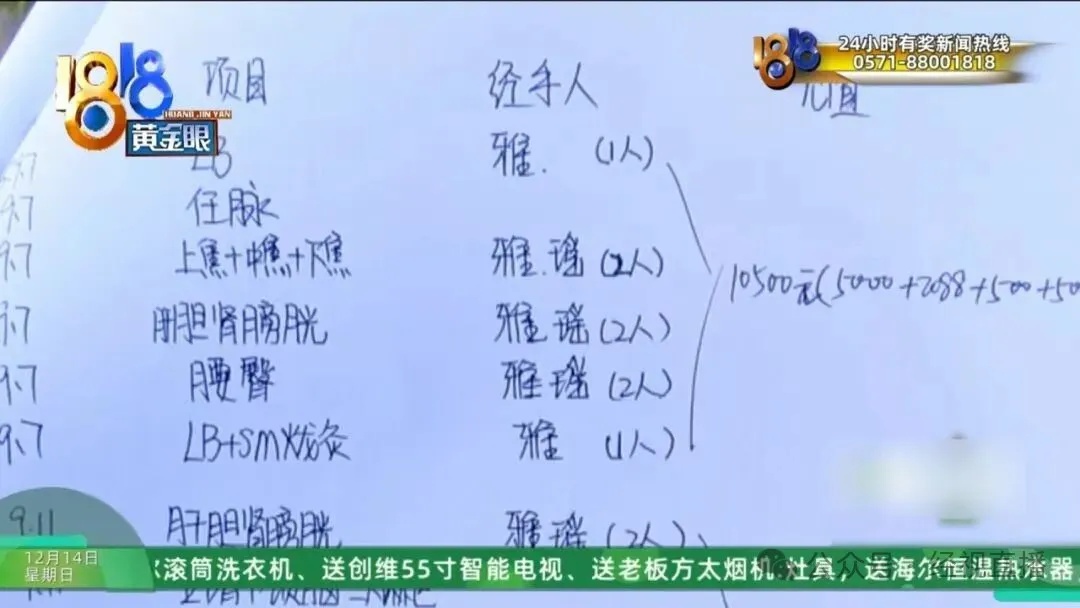 1818
HUANG JIN YAN
黄金眼
1818
24小时有奖新闻热线
0571-88001818
项目 经手人
LB 雅. (1人)
9.7 任脉
9.7 上焦+中焦+下焦 雅.瑶(2人)
10500元(5000+2088+500+50
9.7 肝胆肾膀胱 雅瑶(2人)
9.7 腰臀 雅瑶(2人)
9.7 LB+SM火龙灸 雅 (1人)
9.11 肝胆肾膀胱 雅瑶(2人)
12月14日
星期日
滚筒洗衣机、送创维55寸智能电视、送老板方太烟机灶具、送海尔恒温热水器
公众号·经视直播